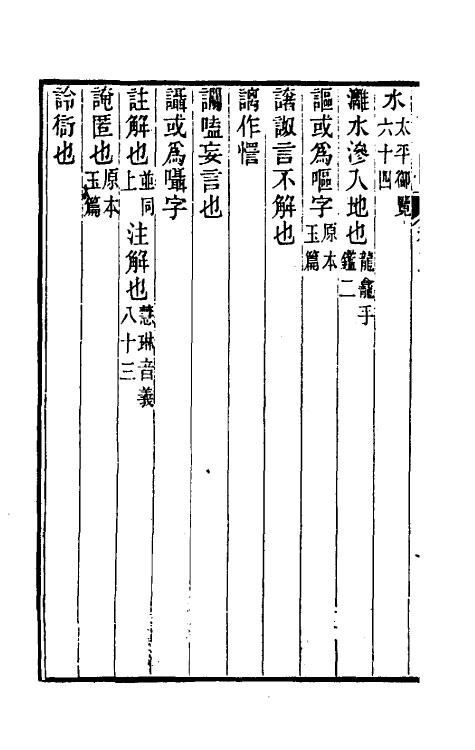 水太平御覽六十四
灕水滲入地也龍龕手鑑二
謳或爲嘔字原本玉篇
譇詉言不解也
謧作𢤂
讕嗑妄言也
讘或爲囁字
註解也並同上注解也慧琳音義八十三
誵匿也原本玉篇
詅衒也